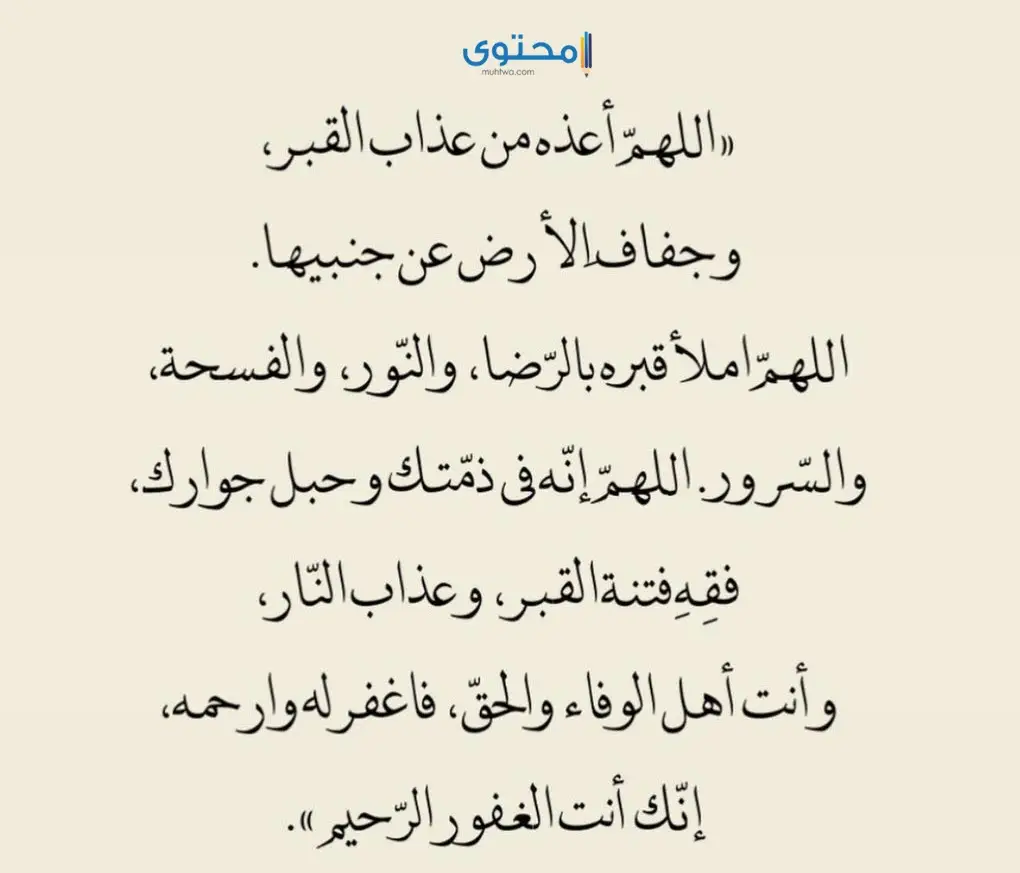 محتوى
muhtwa.com
«اللهمّ أعذه من عذاب القبر،
وجفاف الأرض عن جنبيها.
اللهمّ املأ قبره بالرّضا، والنّور، والفسحة،
والسّرور. اللهمّ إنّه في ذمّتك وحبل جوارك،
فقِهِ فتنة القبر، وعذاب النّار،
وأنت أهل الوفاء والحقّ، فاغفر له وارحمه،
إنّك أنت الغفور الرّحيم».